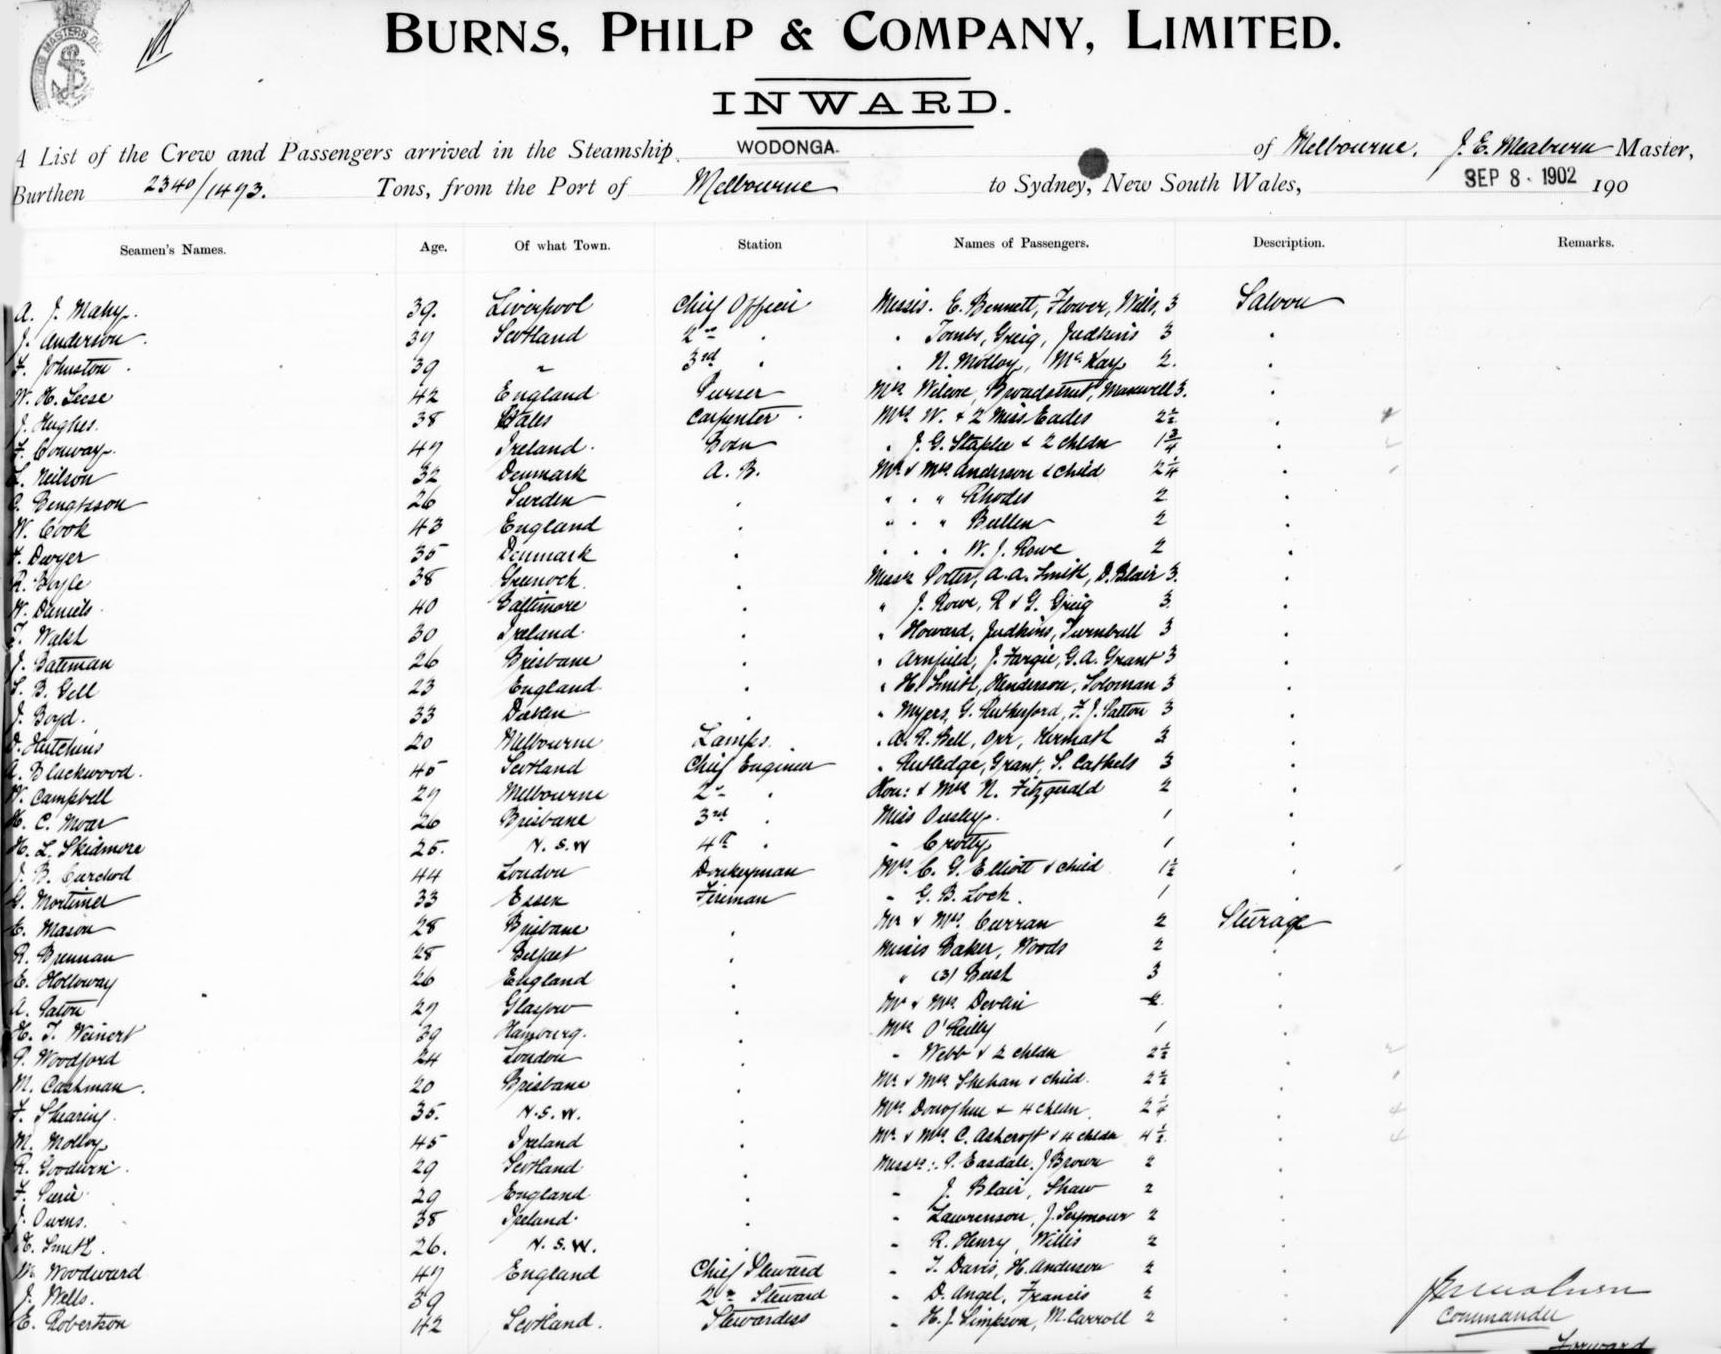 BURNS, PHILP & COMPANY, LIMITED.
INWARD.
A List of the Crew and Passengers arrived in the Steamship WODONGA. of Melbourne. J. E. Meaburn Master,
Burthen 2340/1493. Tons, from the Port of Melbourne to Sydney, New South Wales, SEP 8 - 1902 190
Seamen's Names. Age. Of what Town. Station Names of Passengers. Description. Remarks.
A. J. Mahy. 39. Liverpool Chief Officer Messrs. E. Bennett, Flower, Wills, 3 Saloon
J. Anderson 37 Scotland 2nd " " Tombs, Greig, Judkins 3 "
F. Johnston 39 " 3rd " " N. Molloy, McKay 2. "
W. H. Leese 42 England Purser Mrs Wilcox, Broadstreet, Maxwell 3. "
J. Hughes. 38 Wales Carpenter Mrs W. & 2 Miss Eades 2½ "
F. Conway. 47 Ireland. Bosn " J. G. Staplee & 2 chldn 1¾ "
L. Neilson 32 Denmark A. B. Mr & Mrs Anderson & child 2¼ "
C. Bengtsson 26 Sweden " " " " Rhodes 2 "
W. Cook 43 England " " " " Bullen 2 "
F. Dwyer 35 Denmark " " " " W. J. Rowe 2 "
R. Boyle 38 Greenock " Messrs Potter, A. A. Smith, D. Blair 3. "
W. Daniels 40 Baltimore " " J. Rowe, R & G. Greig 3 "
T. Walsh 30 Ireland " " Howard, Judkins, Turnbull 3 "
J. Bateman 26 Brisbane " " Arnfield, J. Fargie, G. A. Grant 3 "
S. B. Gell 23 England " " H. Smith, Henderson, Soloman 3 "
J. Boyd. 33 Dublin " " Myers, G. Rutherford, F. J. Patton 3 "
D. Hutchins 20 Melbourne Lamps. " A. R. Bell, Orr, Kermath 3 "
A. Blackwood. 45 Scotland Chief Engineer " Rutledge, Grant, S. Cathels 3 "
W. Campbell 27 Melbourne 2nd " Hon: & Mrs N. Fitzgerald 2 "
H. C. Moar 26 Brisbane 3rd " Miss Ousley. 1 "
H. L. Skidmore 25. N. S. W 4th " " Crotty 1 "
J. B. 44 London Donkeyman Mrs C. G. Elliott & child 1½ "
G. Mortimer 33 Essex Fireman " G. B. Lock. 1 "
C. Mason 28 Brisbane " Mr & Mrs Curran 2 Steerage
R. Brennan 28 Belfast " Misses Baker, Woods 2 "
E. Holloway 26 England " " (3) Bush 3 "
A. Paton 27 Glasgow " Mr & Mrs Devlin 2 "
H. T. Weinert 39 Hamburg. " Mrs O'Reilly 1 "
P. Woodford 24 London " " Webb & 2 chldn 2½ "
M. Cashman. 20 Brisbane " Mr & Mrs Shehan & child. 2½ "
F. Shearing 35. N. S. W. " Mrs Donoghue & 4 chldn. 2¼ "
M. Molloy 45 Ireland " Mr & Mrs C. Ashcroft & 4 chldn 4½ "
R. Goodwin 29 Scotland " Messrs: P. Easdale, J Brown 2 "
F. 29 England " " J. Blair, Shaw 2 "
J. Owens. 38 Ireland. " " Lawrenson, J. Seymour 2 "
H. Smith. 26. N. S. W. " " R. Henry, Willis 2 "
W. Woodward 47 England Chief Steward " T. Davis, H. Anderson 2 "
J. Wells. 39 2nd Steward " D. Angel, Francis 2 "
E. Robertson 42 Scotland. Stewardess " H. J. Simpson, M. Carroll 2 "
Commander
Forward